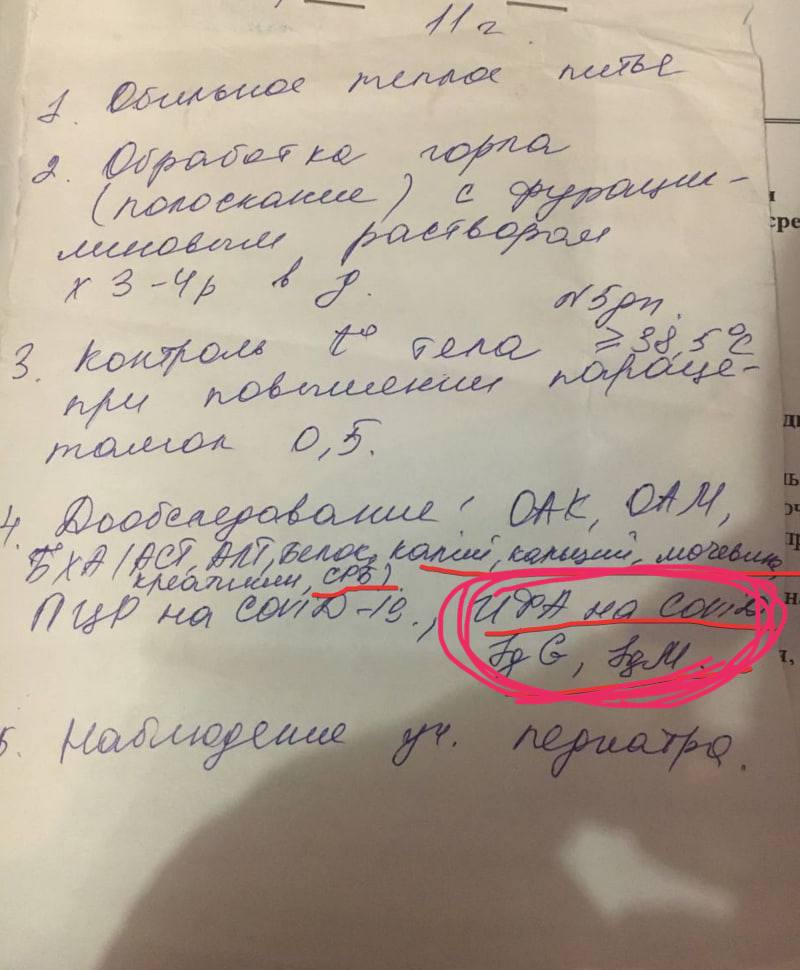 11 г
1. Обильное теплое питье
2. Обработка горла
(полоскание) с фураци-
линовым раствором
х 3-4р в д. N5дн.
3. Контроль t° тела ≥38,5°С
при повышении параце-
тамол 0,5.
4. Дообследование: ОАК, ОАМ,
БХА (АСТ, АЛТ, белок, калий, кальций, мочевина,
креатинин, СРБ)
ПЦР на COVID-19., ИФА на COVID
IgG, IgM.
5. Наблюдение уч. педиатра.
сре